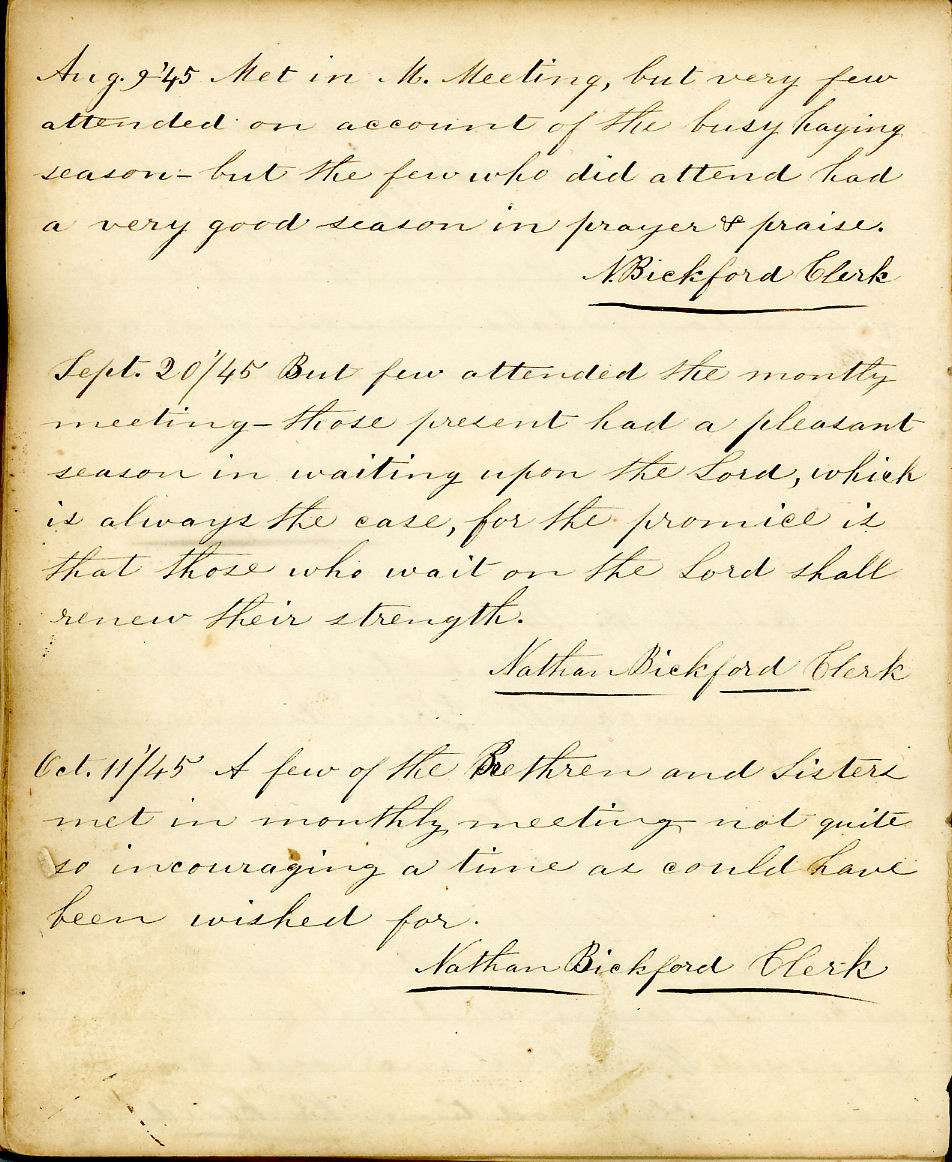 Aug. 9'45 Met in M. Meeting, but very few
attended on account of the busy haying
season - but the few who did attend had
a very good season in prayer & praise.
N. Bickford Clerk
Sept. 20'/45 But few attended the montly
meeting - those present had a pleasant
season in waiting upon the Lord, which
is always the case, for the promice is
that those who wait on the Lord shall
renew their strength.
Nathan Bickford Clerk
Oct. 11'/45 A few of the Brethren and Sisters
met in monthly meeting not quite
so incouraging a time as could have
been wished for.
Nathan Bickford Clerk